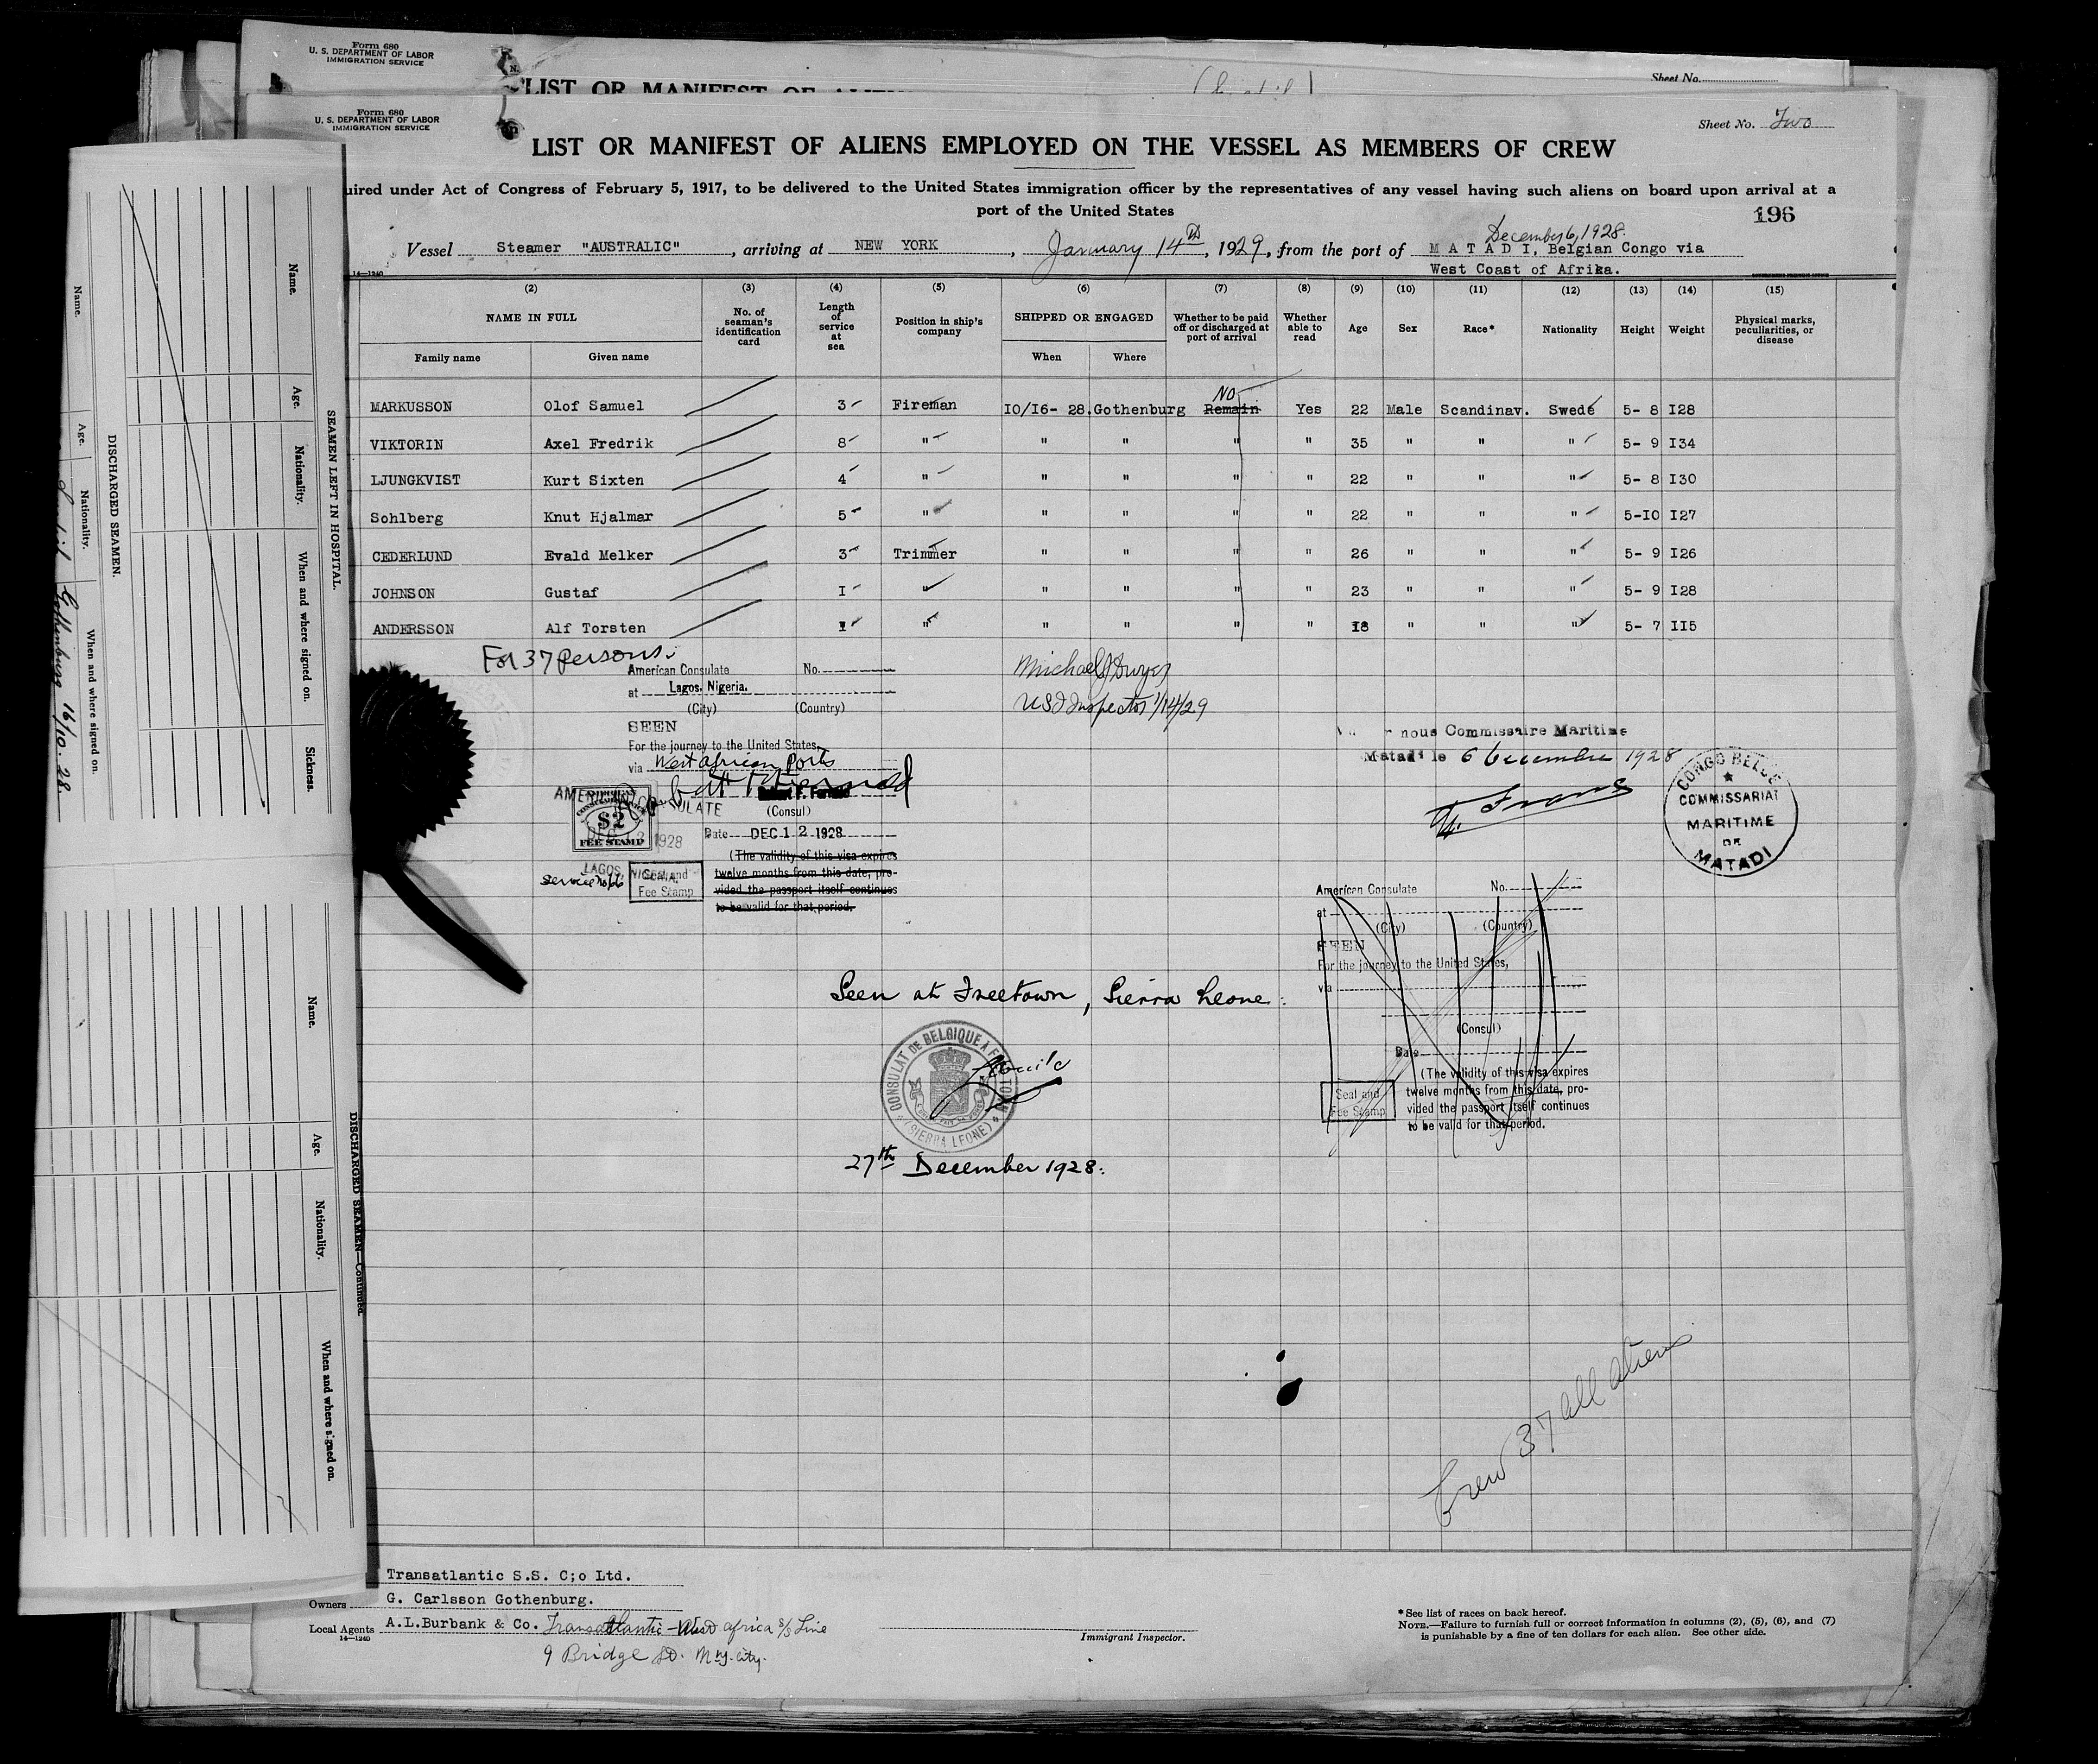 Form 680
U. S. DEPARTMENT OF LABOR
IMMIGRATION SERVICE
Sheet No.
LIST OR MANIFEST OF
Form 680
U. S. DEPARTMENT OF LABOR
IMMIGRATION SERVICE
Sheet No. Two
LIST OR MANIFEST OF ALIENS EMPLOYED ON THE VESSEL AS MEMBERS OF CREW
uired under Act of Congress of February 5, 1917, to be delivered to the United States immigration officer by the representatives of any vessel having such aliens on board upon arrival at a
port of the United States
196
December 6, 1928.
Vessel Steamer "AUSTRALIC", arriving at NEW YORK, January 14th, 1929, from the port of M A T A D I, Belgian Congo via
West Coast of Afrika.
14—1240
(2) (3) (4) (5) (6) (7) (8) (9) (10) (11) (12) (13) (14) (15)
NAME IN FULL No. of seaman's identification card Length of service at sea Position in ship's company SHIPPED OR ENGAGED Whether to be paid off or discharged at port of arrival Whether able to read Age Sex Race* Nationality Height Weight Physical marks, peculiarities, or disease
Family name Given name When Where
No
MARKUSSON Olof Samuel 3 Fireman IO/I6- 28. Gothenburg Remain Yes 22 Male Scandinav. Swede 5- 8 I28
VIKTORIN Axel Fredrik 8 " " " " " 35 " " " 5- 9 I34
LJUNGKVIST Kurt Sixten 4 " " " " " 22 " " " 5- 8 I30
Sohlberg Knut Hjalmar 5 " " " " " 22 " " " 5-IO I27
CEDERLUND Evald Melker 3 Trimmer " " " " 26 " " " 5- 9 I26
JOHNSON Gustaf I " " " " " 23 " " " 5- 9 I28
ANDERSSON Alf Torsten I " " " " " I8 " " " 5- 7 II5
For 37 persons.
American Consulate No.
at Lagos, Nigeria.
(City) (Country)
SEEN
For the journey to the United States,
via West african Ports
(Consul)
Date DEC 1 2 1928
(The validity of this visa expires
twelve months from this date, pro-
vided the passport itself continues
to be valid for that period.
AMERICAN CONSULATE
$2
FEE STAMP
DEC 12 1928
LAGOS, NIGERIA.
Seal and
Fee Stamp
Service No 66
Michael J Dwyer
USI Inspector 1/14/29
nous Commissaire Maritime
Matadi le 6 Decembre 1928
CONGO BELGE
COMMISSARIAT
MARITIME
DE
MATADI
American Consulate No.
at
(City) (Country)
SEEN
For the journey to the United States,
via
(Consul)
Date
(The validity of this visa expires
twelve months from this date, pro-
vided the passport itself continues
to be valid for that period.
Seal and
Fee Stamp
Seen at Freetown, Sierra Leone:
CONSULAT DE BELGIQUE A FREETOWN
(SIERRA LEONE)
27th December 1928:
Crew 37 all aliens
Transatlantic S.S. C;o Ltd.
Owners G. Carlsson Gothenburg.
Local Agents A.L.Burbank & Co. Transatlantic - West africa S/S Line
14—1240
9 Bridge St. N.Y. City.
Immigrant Inspector.
*See list of races on back hereof.
NOTE.—Failure to furnish full or correct information in columns (2), (5), (6), and (7)
is punishable by a fine of ten dollars for each alien. See other side.
SEAMEN LEFT IN HOSPITAL.
Name. Age. Nationality. When and where signed on. Sickness.
DISCHARGED SEAMEN.
Name. Age. Nationality. When and where signed on.
Gothenburg 16/10. 28.
DISCHARGED SEAMEN—Continued.
Name. Age. Nationality. When and where signed on.